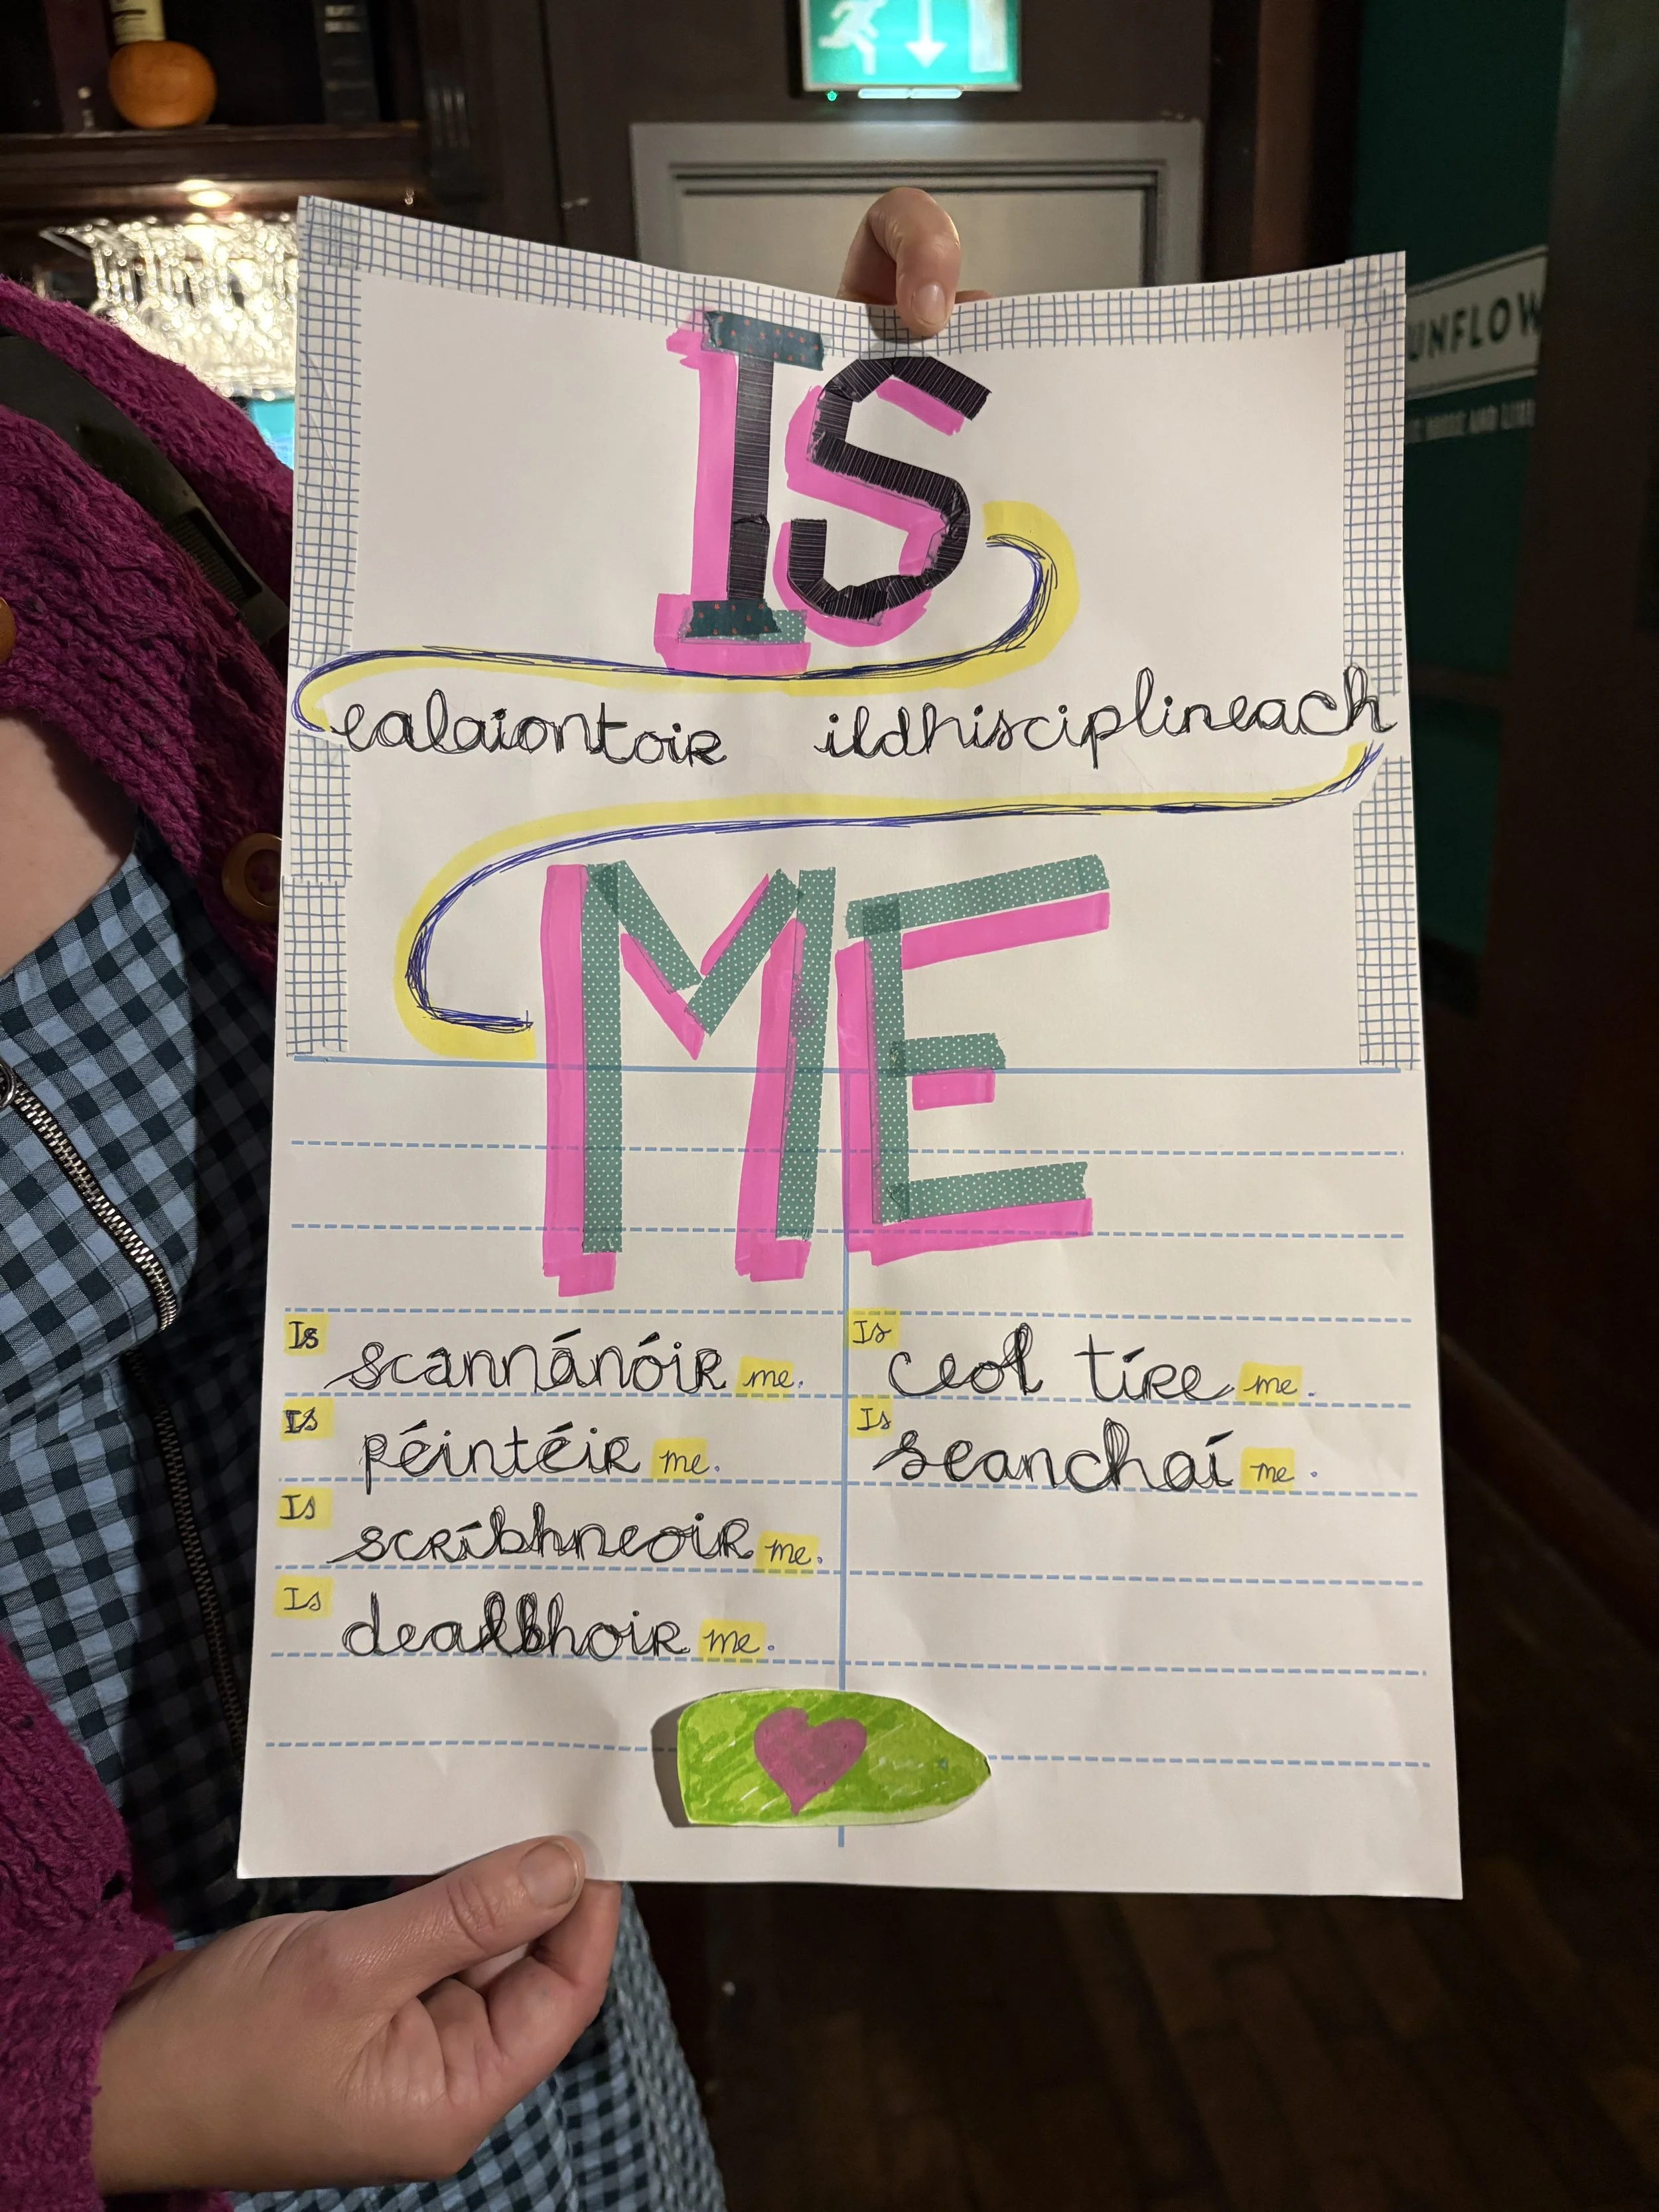 IS
ealaiontoir ildhisciplineach
ME
Is scannánóir me.
Is péintéir me.
Is scríbhneoir me.
Is dealbhoir me.
Is ceol tíre me.
Is seanchaí me.
UNFLOW
MUSIC AND LIVE